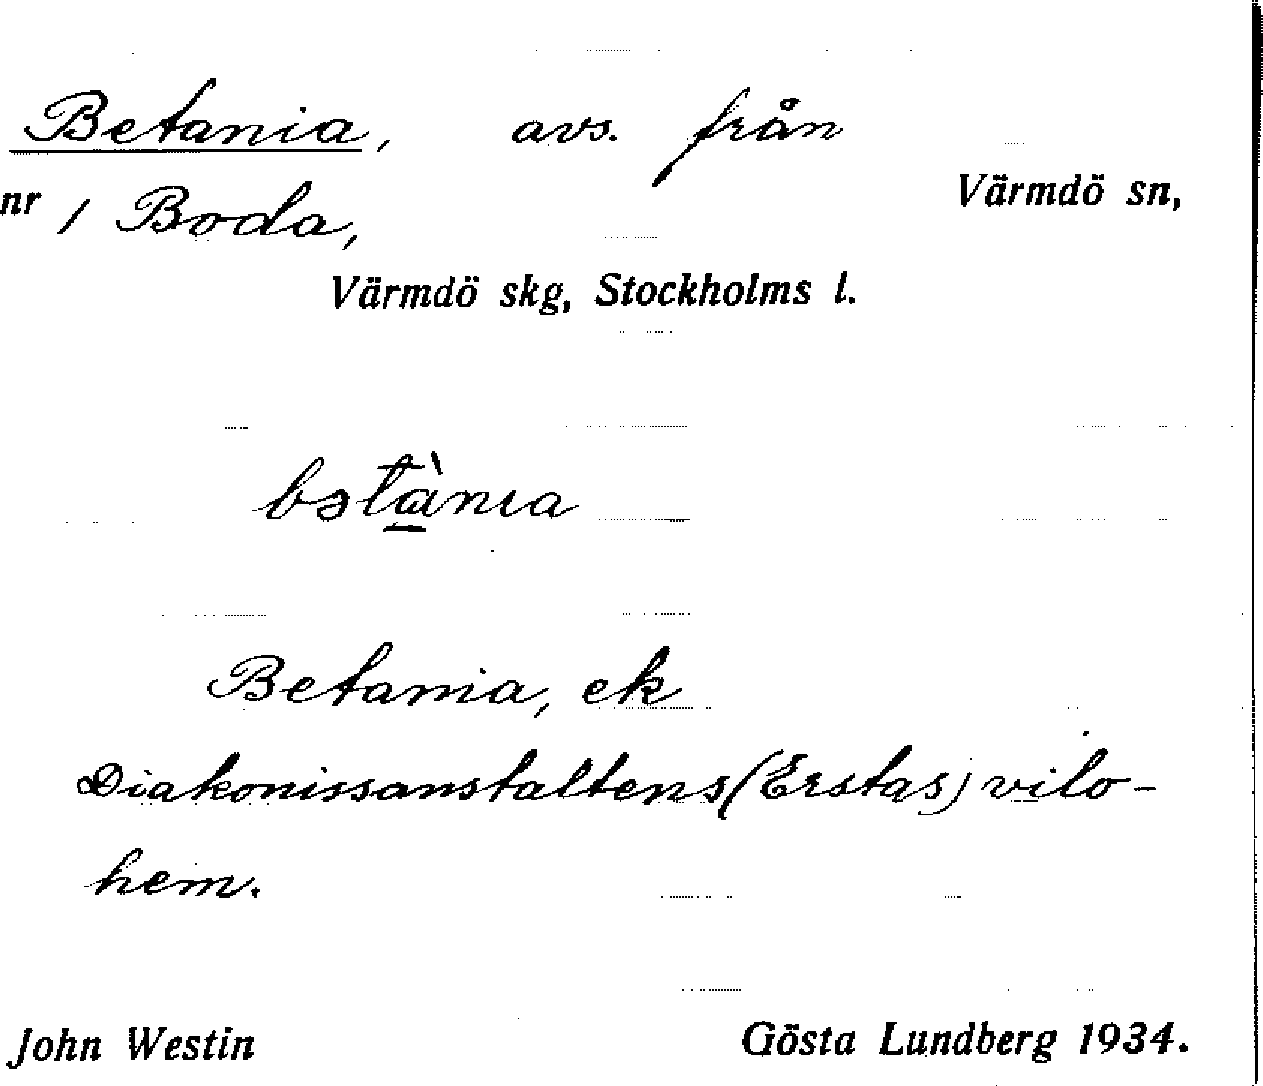 Betania, avs. från
nr 1 Boda, Värmdö sn,
Värmdö skg, Stockholms l.
bətània
Betania, ek
Diakonissanstaltens (Erstas) vilo-
hem.
John Westin Gösta Lundberg 1934.